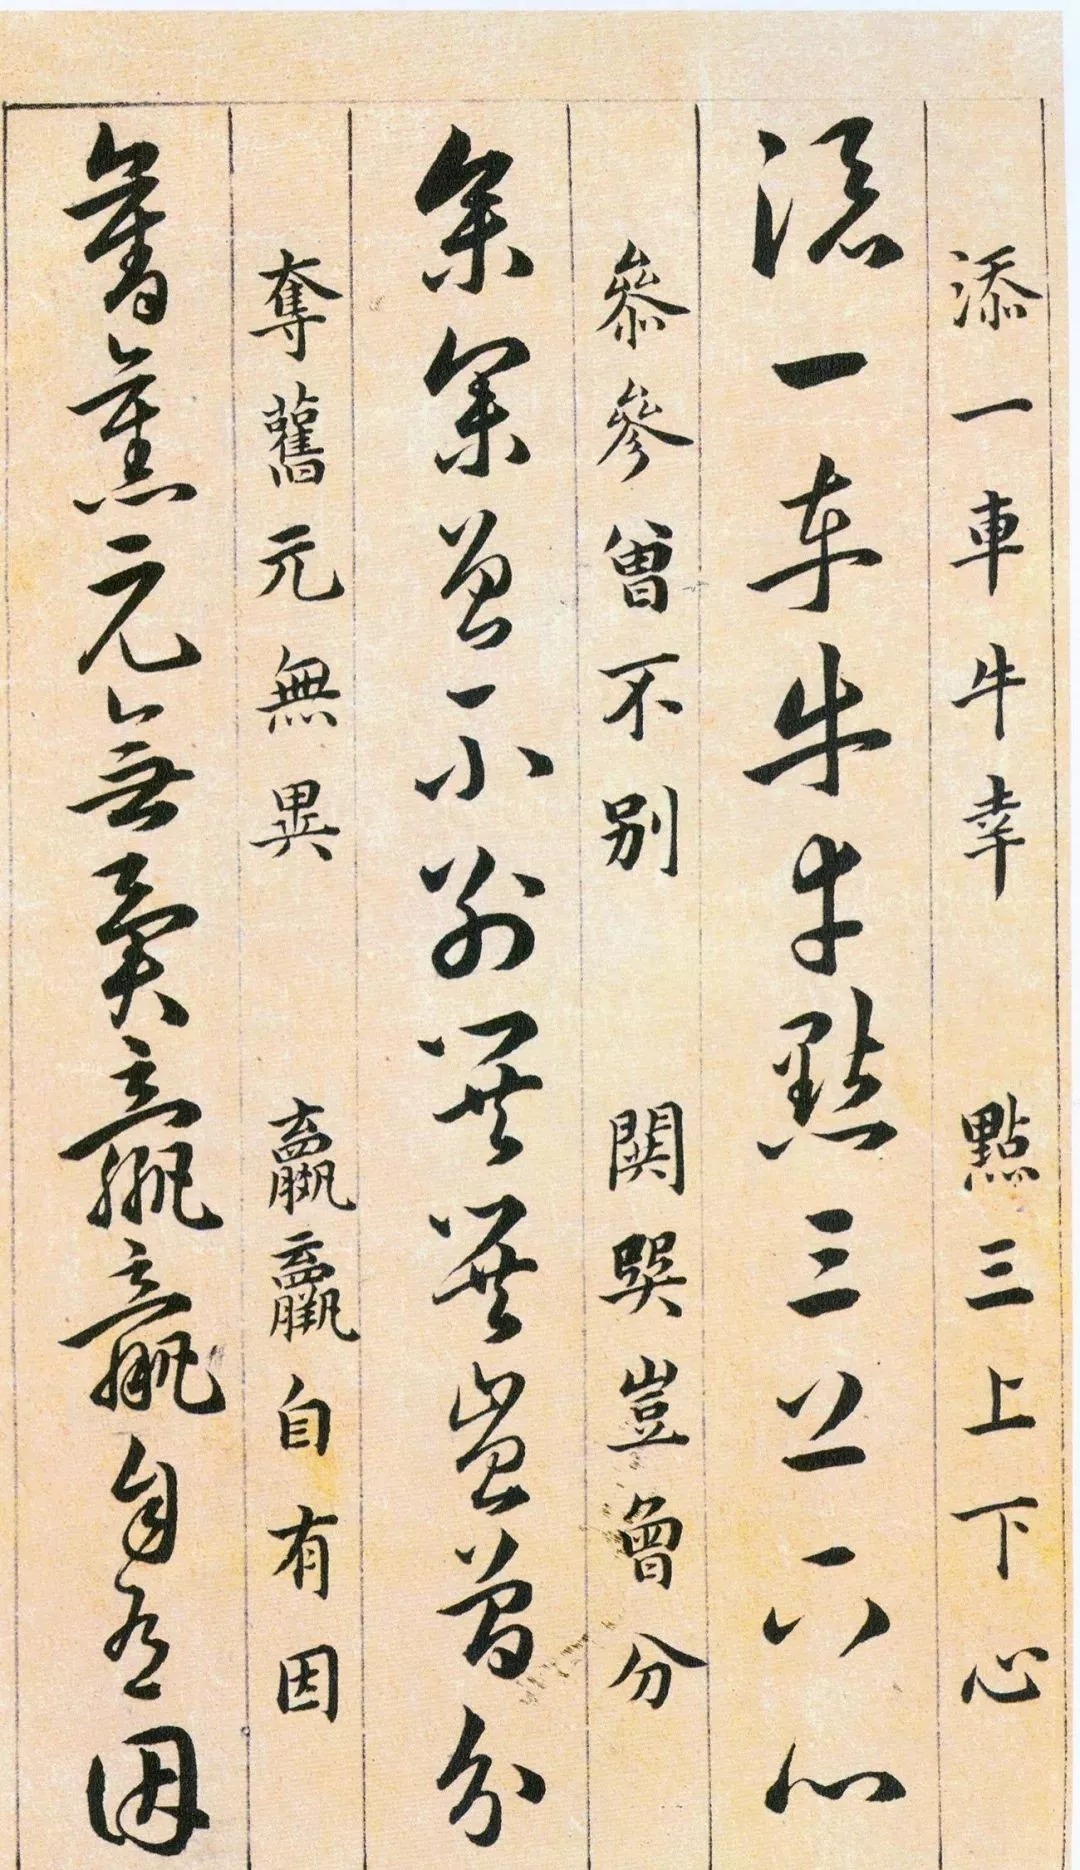 添一車牛幸 點三上下心
添一車牛幸點三上下心
叅參曾不别 閧巽豈曾分
叅參曾不别閧巽豈曾分
奪舊元無異 嬴羸自有因
奪舊元無異嬴羸自有因